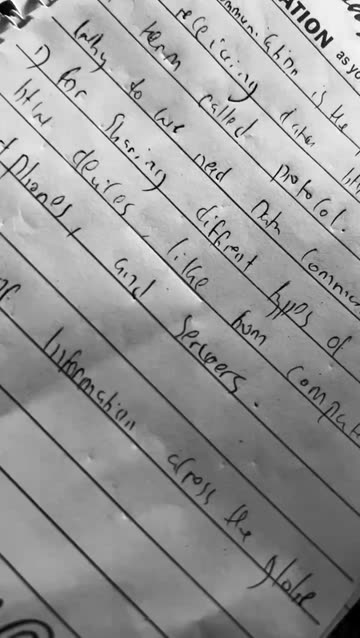 ATION as yo
mmunication is the
receiving data
term called protocol.
Why to we need Data Commun
1) for Sharing different types of
btw devices, like from comput
phones, and servers.
Information across the globe